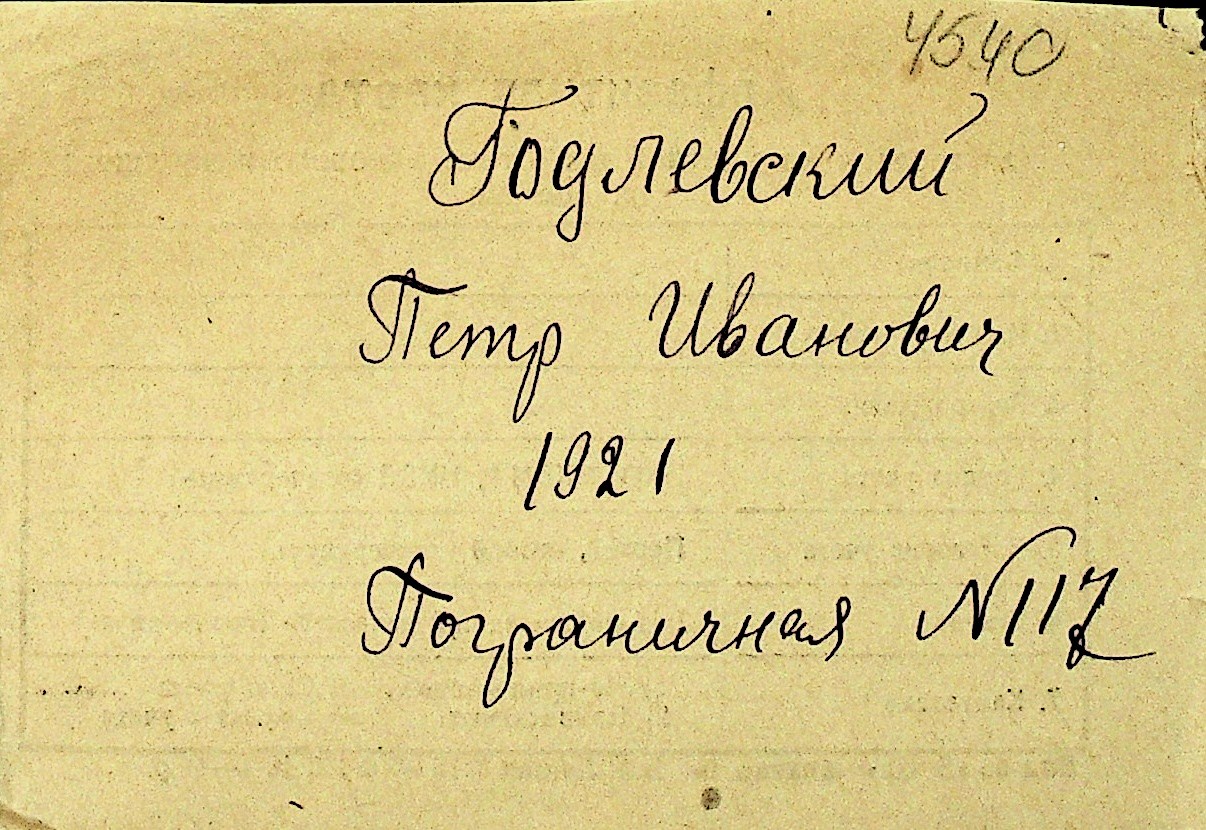 4540
Годлевский
Петр Иванович
1921
Пограничная №117